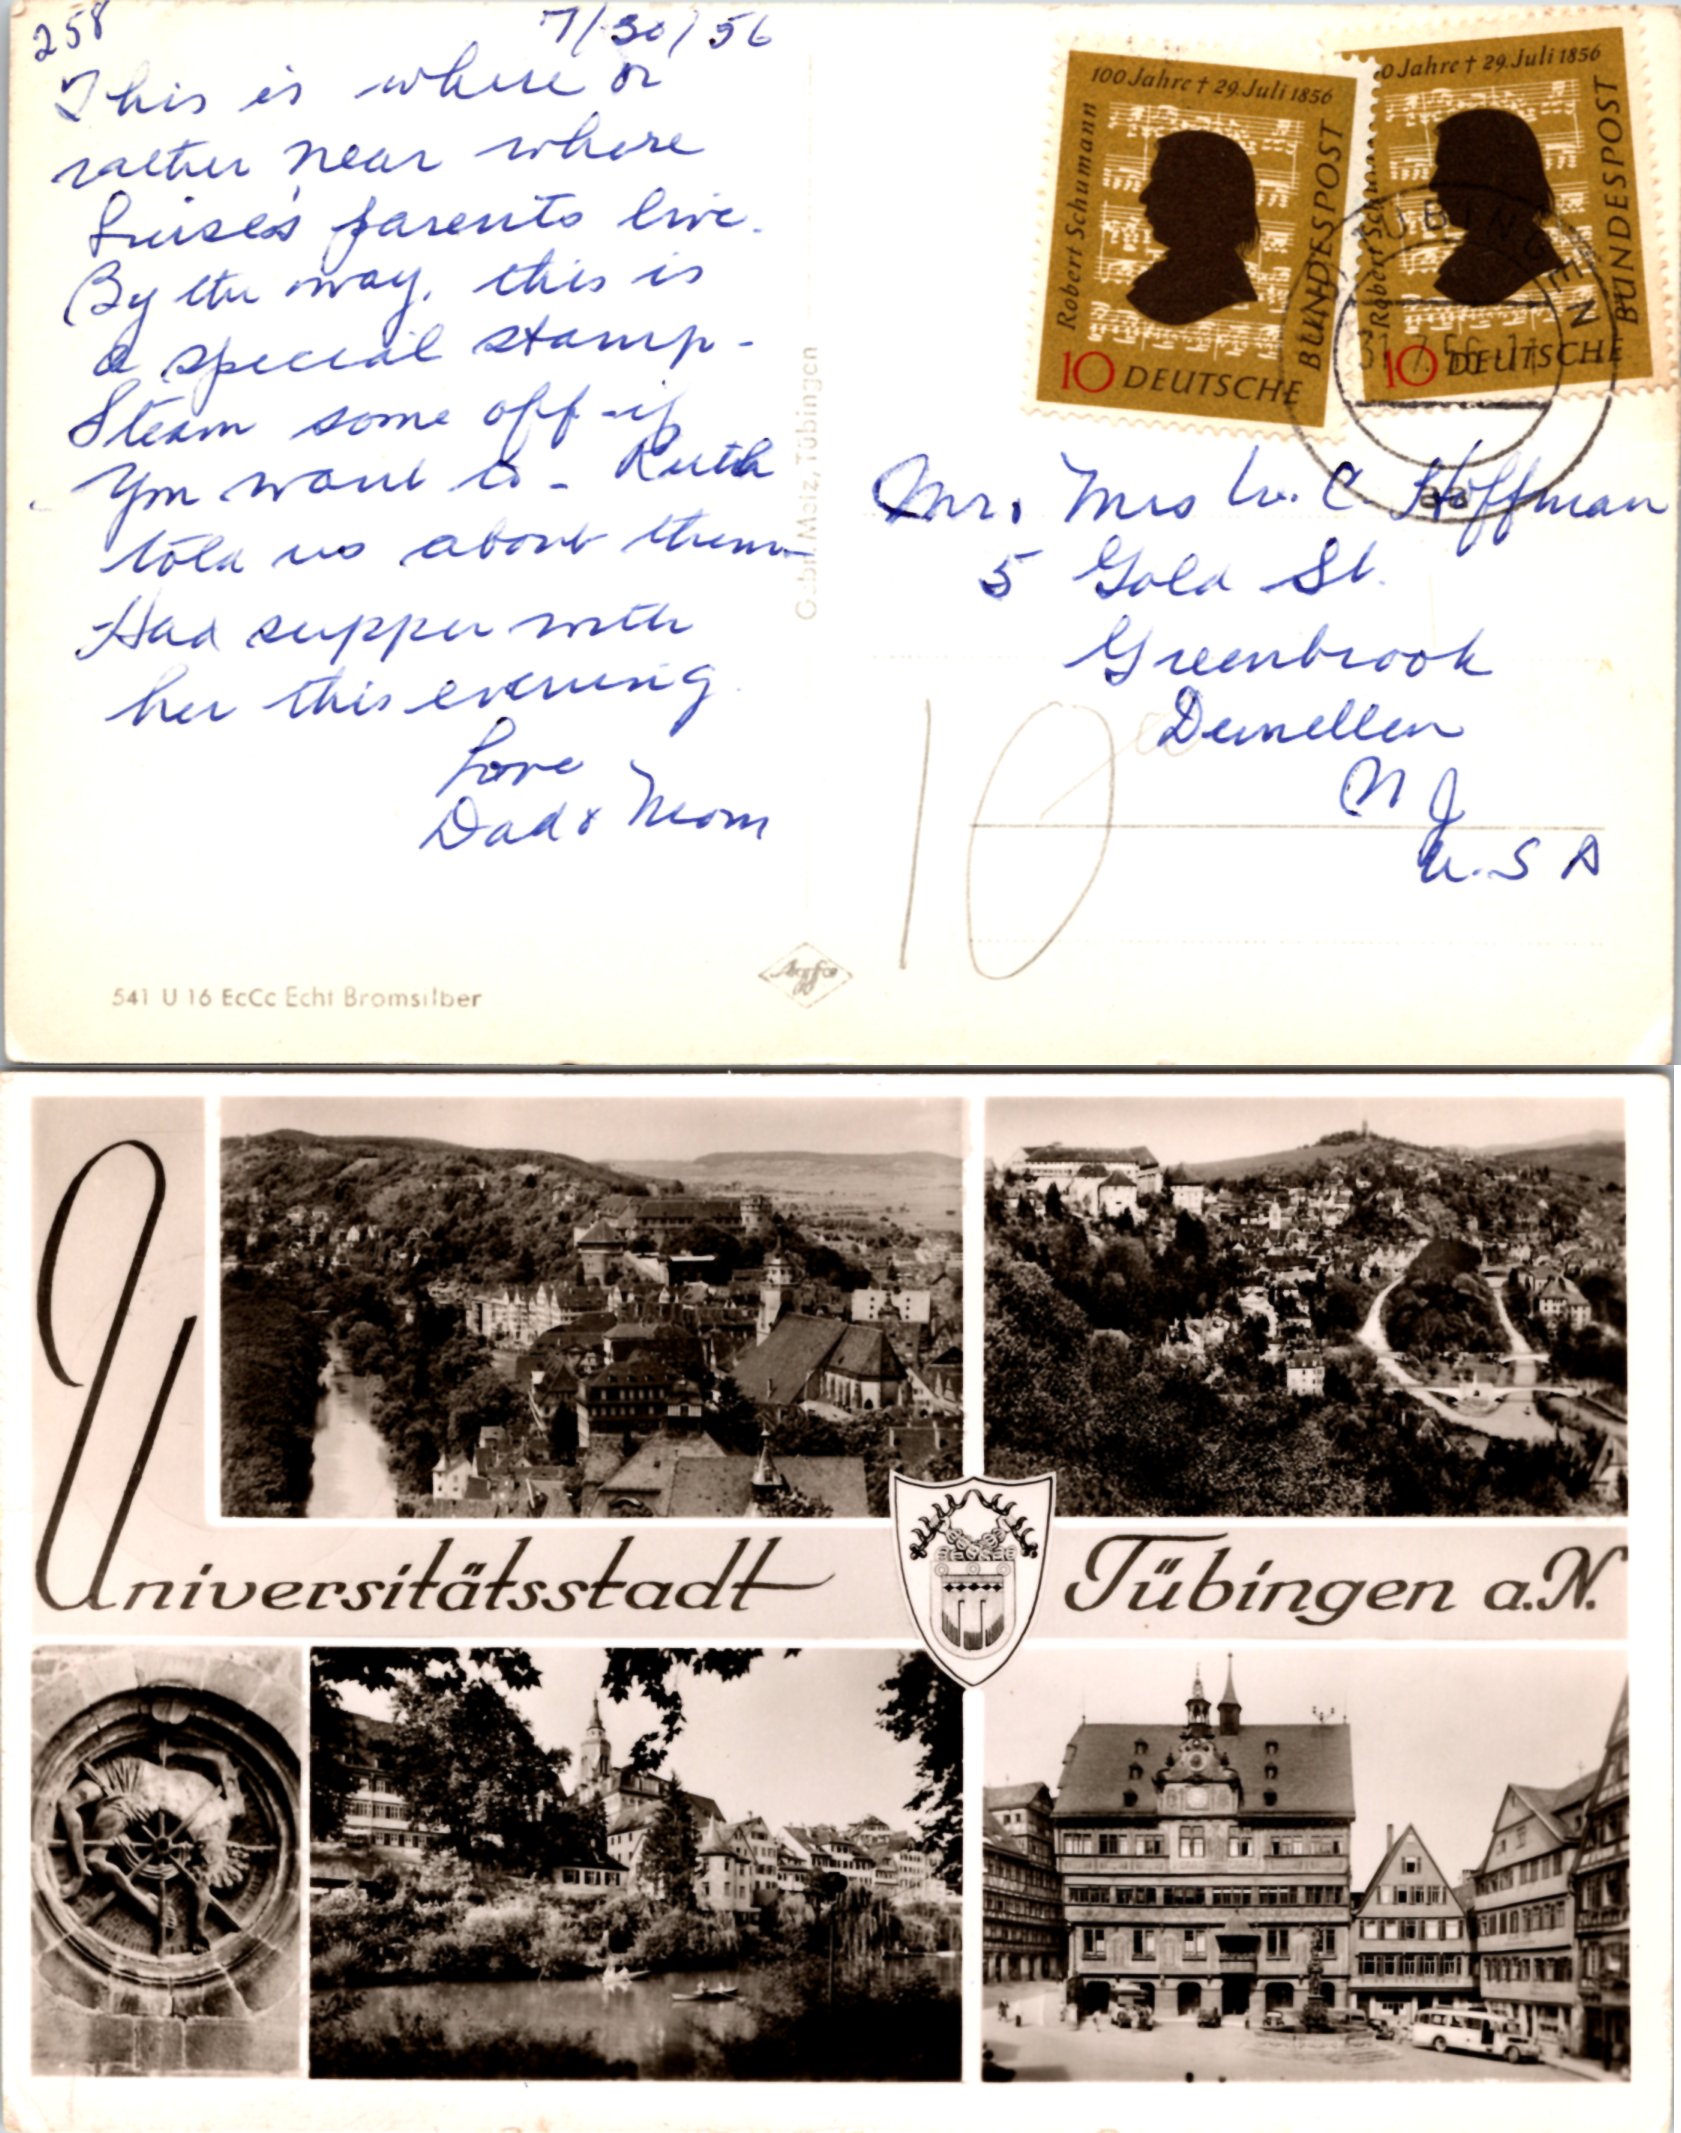 258
7/30/56
This is where or
rather near where
Luise's parents live.
By the way, this is
a special stamp -
Steam some off - if
you want to - Ruth
told us about them
Had supper with
her this evening
Love
Dad & Mom
541 U 16 EcCc Echt Bromsilber
Gebr. Metz, Tübingen
Agfa
100 Jahre † 29. Juli 1856
Robert Schumann
10 DEUTSCHE
BUNDESPOST
0 Jahre † 29. Juli 1856
Robert Schumann
10 DEUTSCHE
BUNDESPOST
TÜBINGEN
31.7.56
Mr. Mrs W. C. Hoffman
5 Gold St.
Greenbrook
Dunellen
N J
U.S A
10
Universitätsstadt Tübingen a.N.